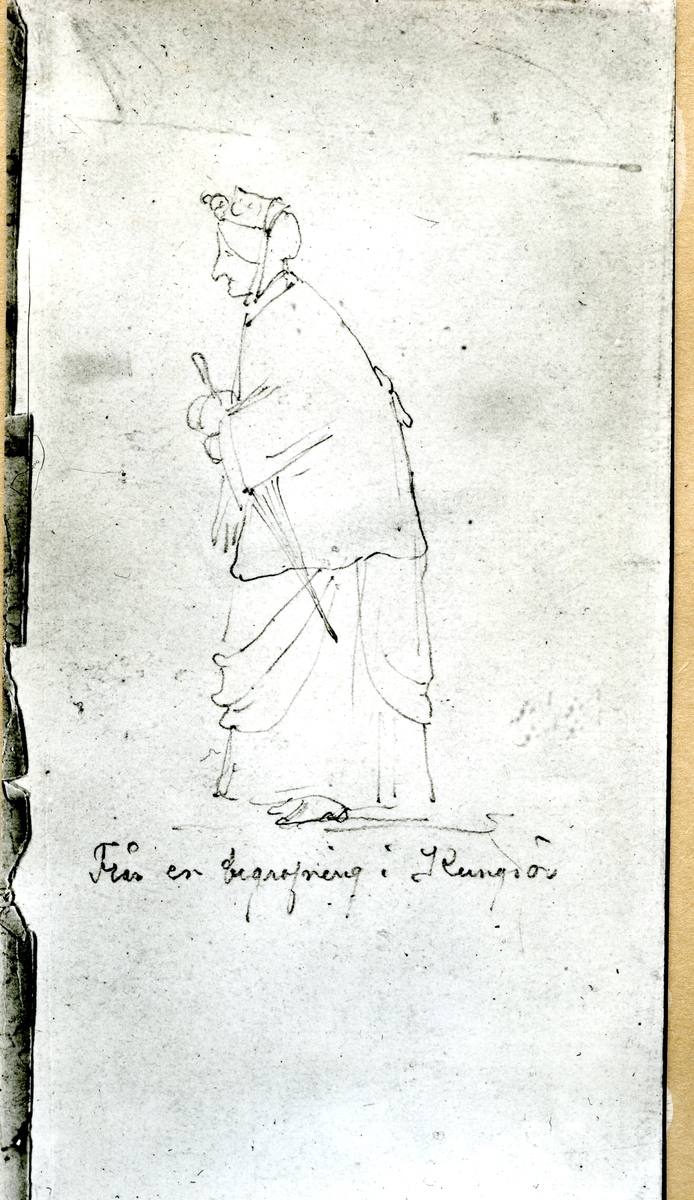 Från en begrafning i Kungsör